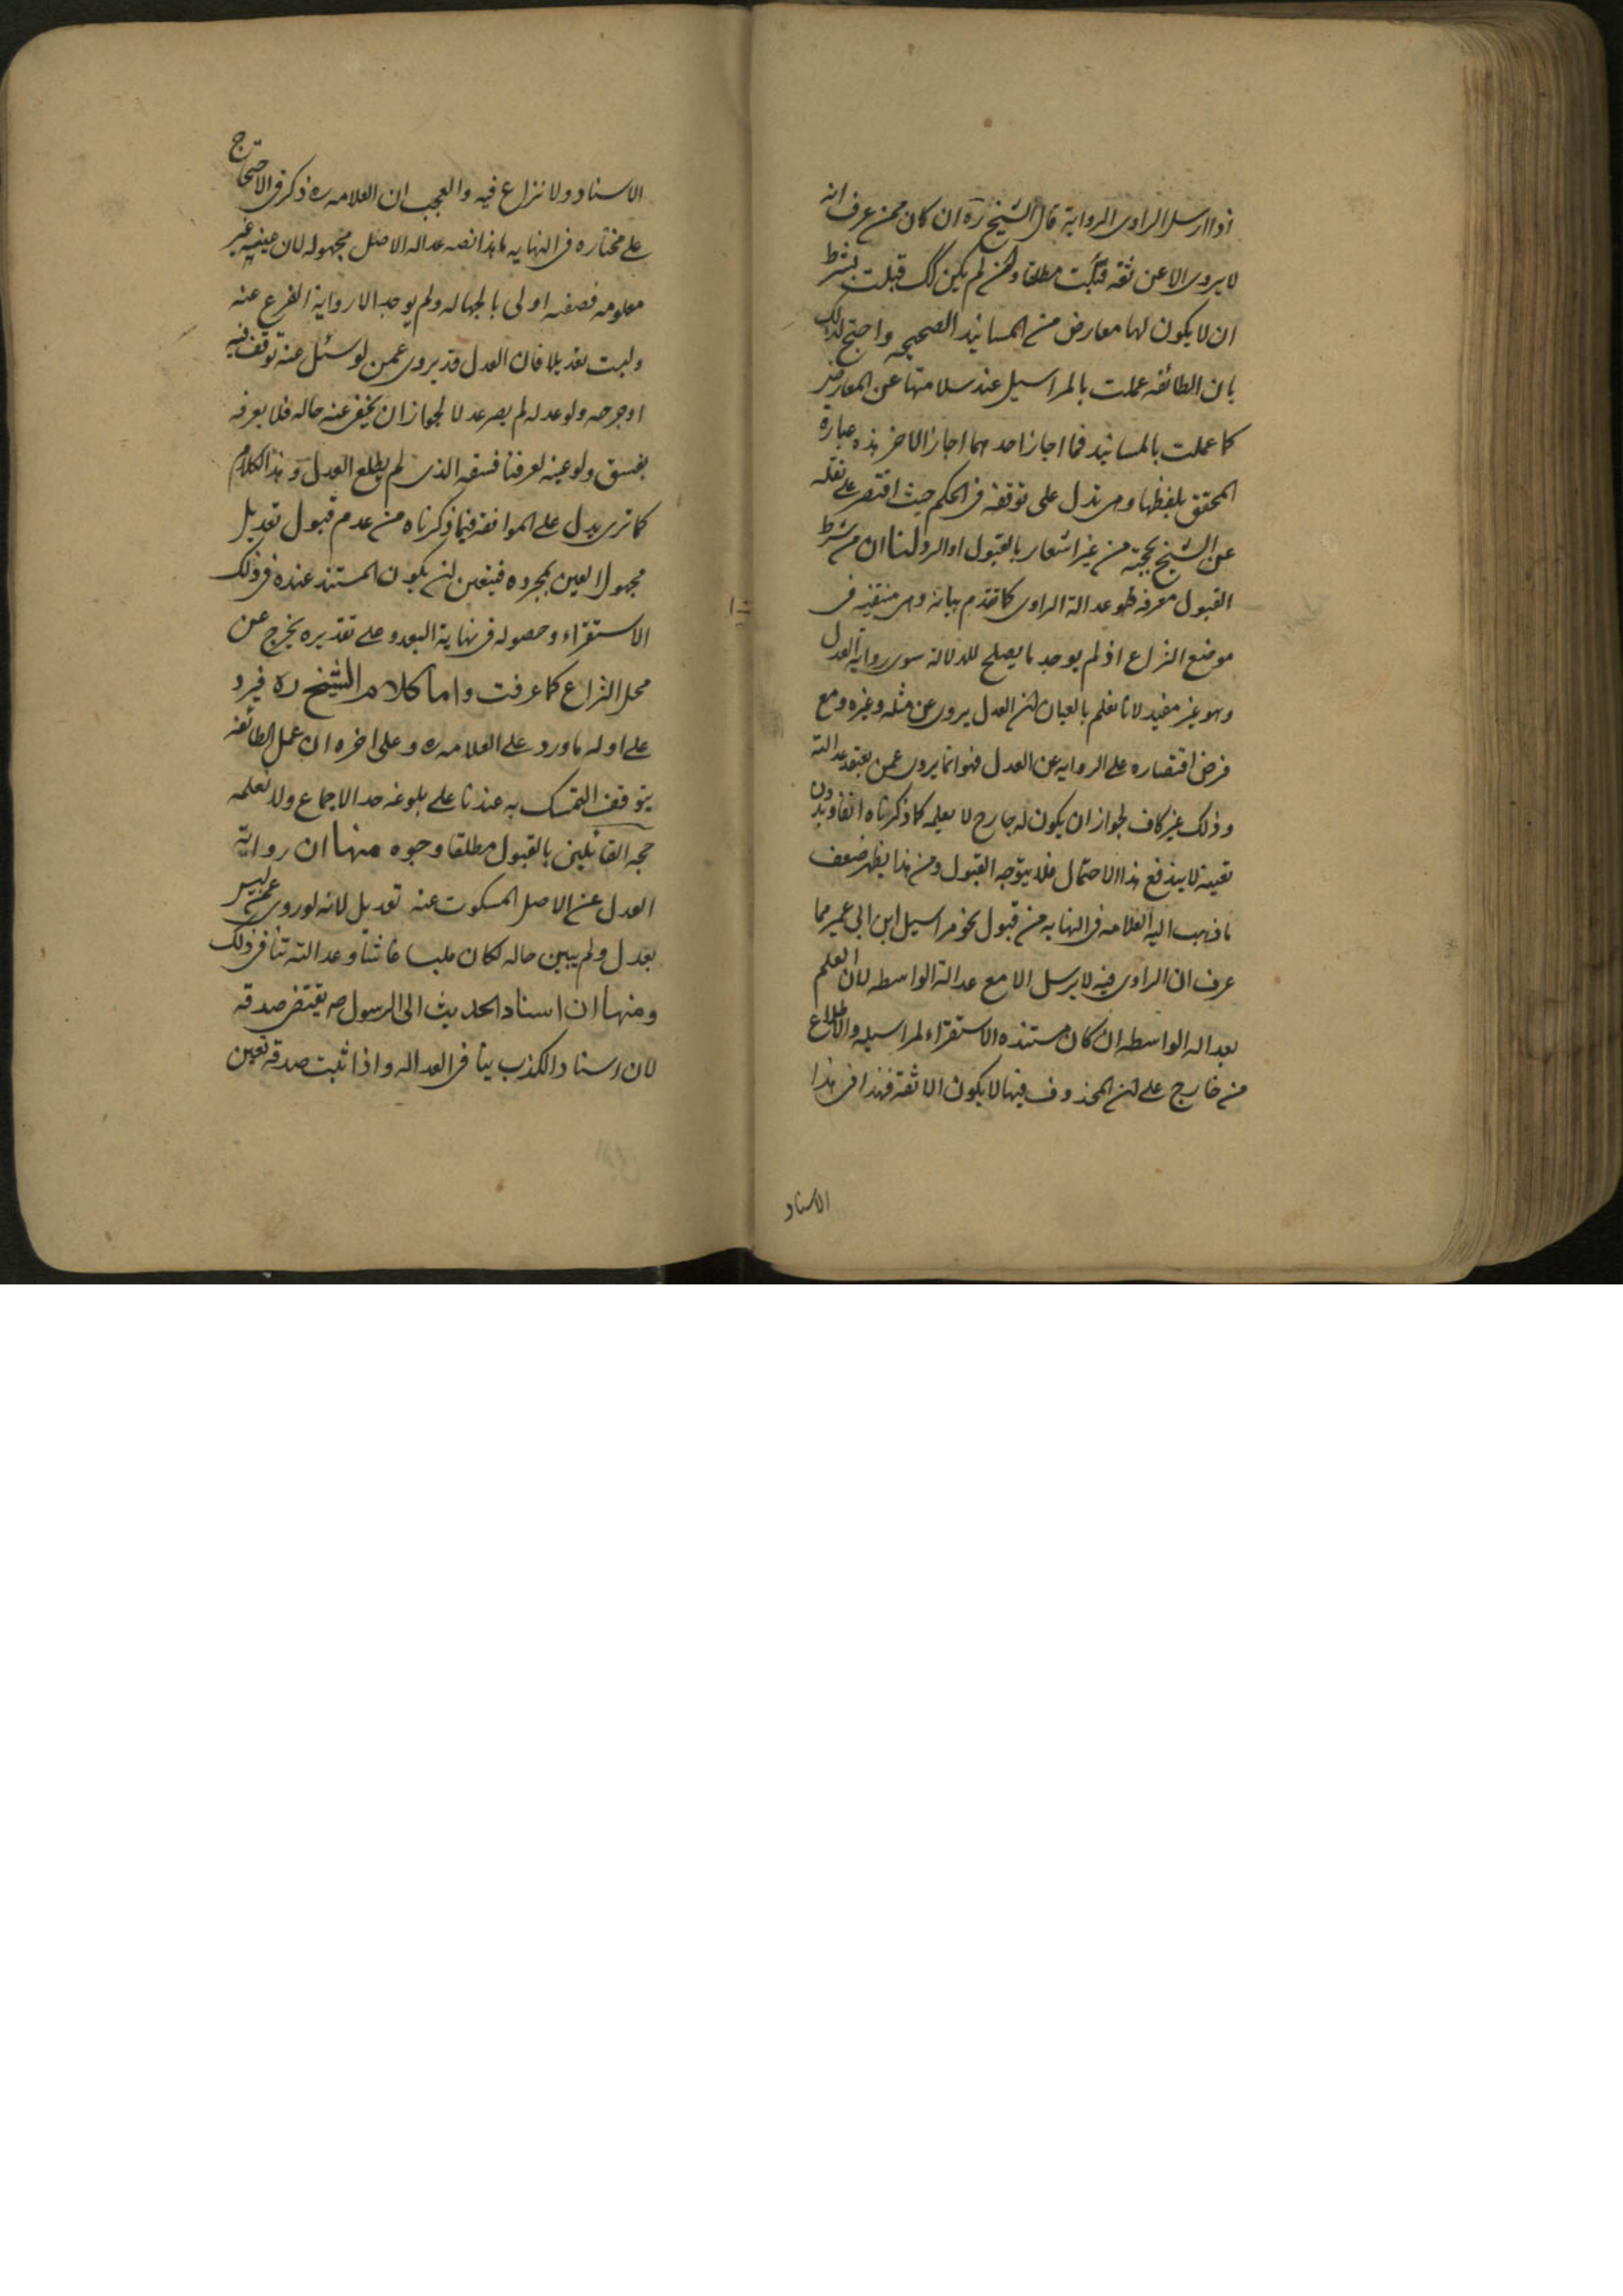 اذا ارسل الراوى الرواية قال الشيخ ره ان كان ممن عرف انه
لا يروى الا عن ثقة قبلت مطلقا وان لم يكن كك قبلت بشرط
ان لا يكون لها معارض من المسانيد الصحيحه واحتج لذلك
بان الطائفه عملت بالمراسيل عند سلامتها عن المعارض
كما عملت بالمسانيد فما اجاز احدهما اجاز الاخر هذه عبارة
المحقق بلفظها وهى تدل على توقفه فى الحكم حيث اقتصر على نقله
عن الشيخ بحجته من غير اشعار بالقبول او الرد لنا ان من شرط
القبول معرفه عدالة الراوى كما تقدم بيانه وهى منتفيه فى
موضع النزاع اذ لم يوجد ما يصلح للدلالة سوى رواية العدل
وهو غير مفيد لانا نعلم بالعيان ان العدل يروى عن مثله وغيره ومع
فرض اقتصاره على الروايه عن العدل فهو انما يروى عمن يعتقد عدالته
وذلك غير كاف لجواز ان يكون له جارح لا يعلمه كما ذكرناه انفا وبدون
تعيينه لا يندفع هذا الاحتمال فلا يتوجه القبول ومن هذا يظهر ضعف
ما ذهب اليه العلامه فى النهايه من قبول نحو مراسيل ابن ابى عمير مما
عرف ان الراوى فيه لا يرسل الا مع عدالة الواسطه لان العلم
بعداله الواسطه ان كان مستنده الاستقراء لمراسيله والاطلاع
من خارج على ان المحذوف فيها لا يكون الا ثقة فهذا فى هذا
الاسناد
الاسناد ولا نزاع فيه والعجب ان العلامه ره ذكر فى الاحتجاج
على مختاره فى النهايه ما هذا نصه عداله الاصل مجهوله لان عينه غير
معلومه فصفته اولى بالجهاله ولم يوجد الا رواية الفرع عنه
وليست تعديلا فان العدل قد يروى عمن لو سئل عنه توقف فيه
او جرحه ولو عدله لم يصر عدلا لجواز ان يخفى عنه حاله فلا يعرفه
بفسق ولو عينه لعرفنا فسقه الذى لم يطلع العدل وهذا الكلام
كما ترى يدل على الموافقه فيما ذكرناه من عدم قبول تعديل
مجهول العين بمجرده فيتعين ان يكون المستند عنده فى ذلك
الاستقراء وحصوله فى نهاية البعد وعلى تقديره يخرج عن
محل النزاع كما عرفت واما كلام الشيخ ره فيرد
على اوله ما ورد على العلامه ره وعلى اخره ان عمل الطائفه
يتوقف التمسك به عندنا على بلوغه حد الاجماع ولا نعلمه
حجه القائلين بالقبول مطلقا وجوه منها ان رواية
العدل عن الاصل المسكوت عنه تعديل لانه لو روى عمن ليس
بعدل ولم يبين حاله لكان ملبسا غاشا وعدالته تنافى ذلك
ومنها ان اسناد الحديث الى الرسول صه يقتضى صدقه
لان اسناد الكذب ينافى العداله واذا ثبت صدقه تعين